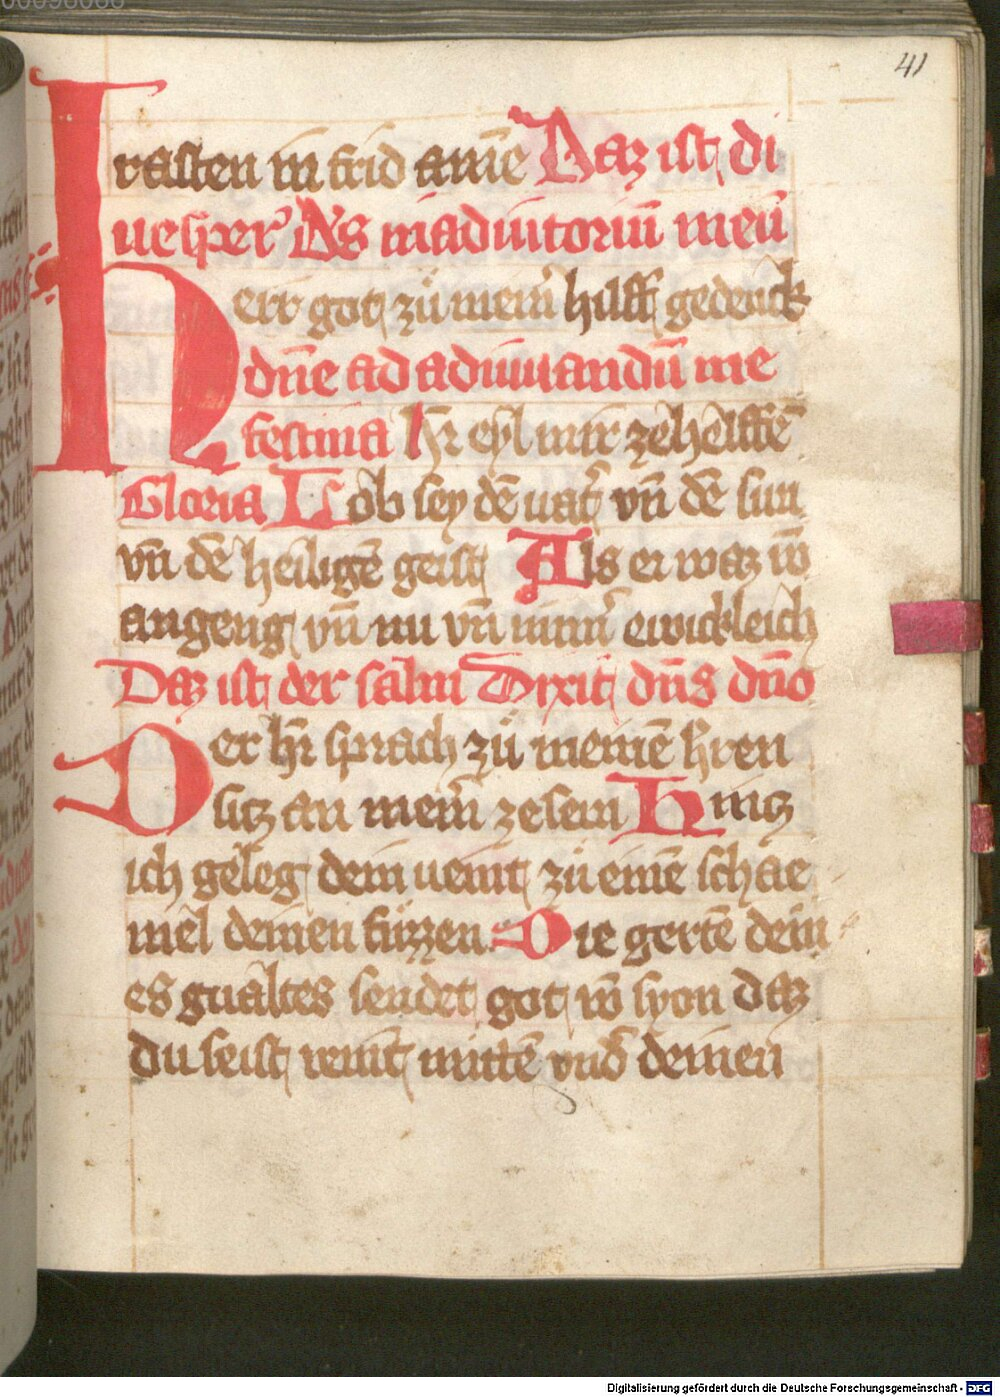 41
rasten in frid amē Daz ist di
uesper Ds̄ in adiutoriū meū
Herr got zů mein̄ hilff gedenck
dn̄e ad adiuuandū me
festina Hr̄ eyl mir zehelffē
Gloria Lob sey dē uat̄ vn̄ dē sun
vn̄ dē heiligē geist Als er waz in̄
angeng vn̄ nu vn̄ im̄ ewickleich
Daz ist der salm Dixit dn̄s dn̄o
Der hr̄ sprach zů meinē hren
sitz an mein̄ zesem Hintz
ich geleg dein ueint zů einē schae
mel deinen fůzzen Die gertē dein
es gualtes sendet got vō syon daz
du seist reint mittē vnd̄ deinen
Digitalisierung gefördert durch die Deutsche Forschungsgemeinschaft - DFG